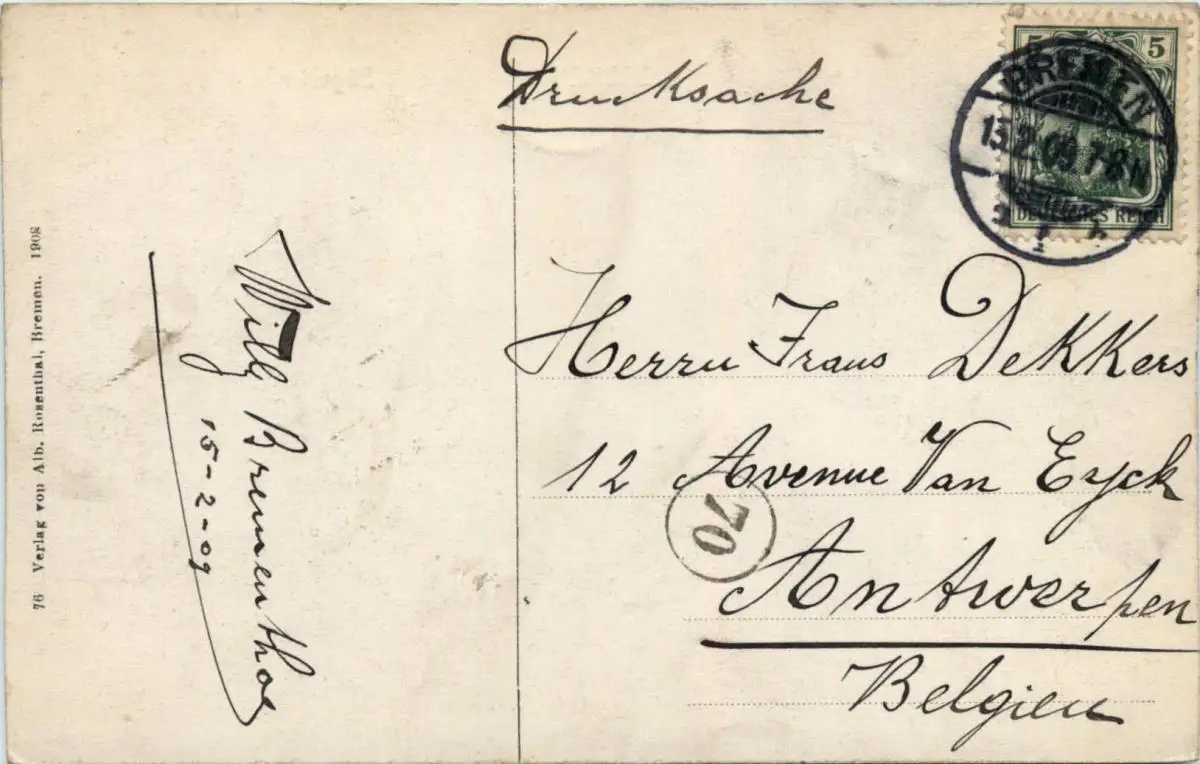 Drucksache
5 5
BREMEN
DEUTSCHES REICH
Herrn Frans Dekkers
12 Avenue Van Eyck
70
Antwerpen
Belgien
Willy
15-2-09
76 Verlag von Alb. Rosenthal, Bremen. 1908